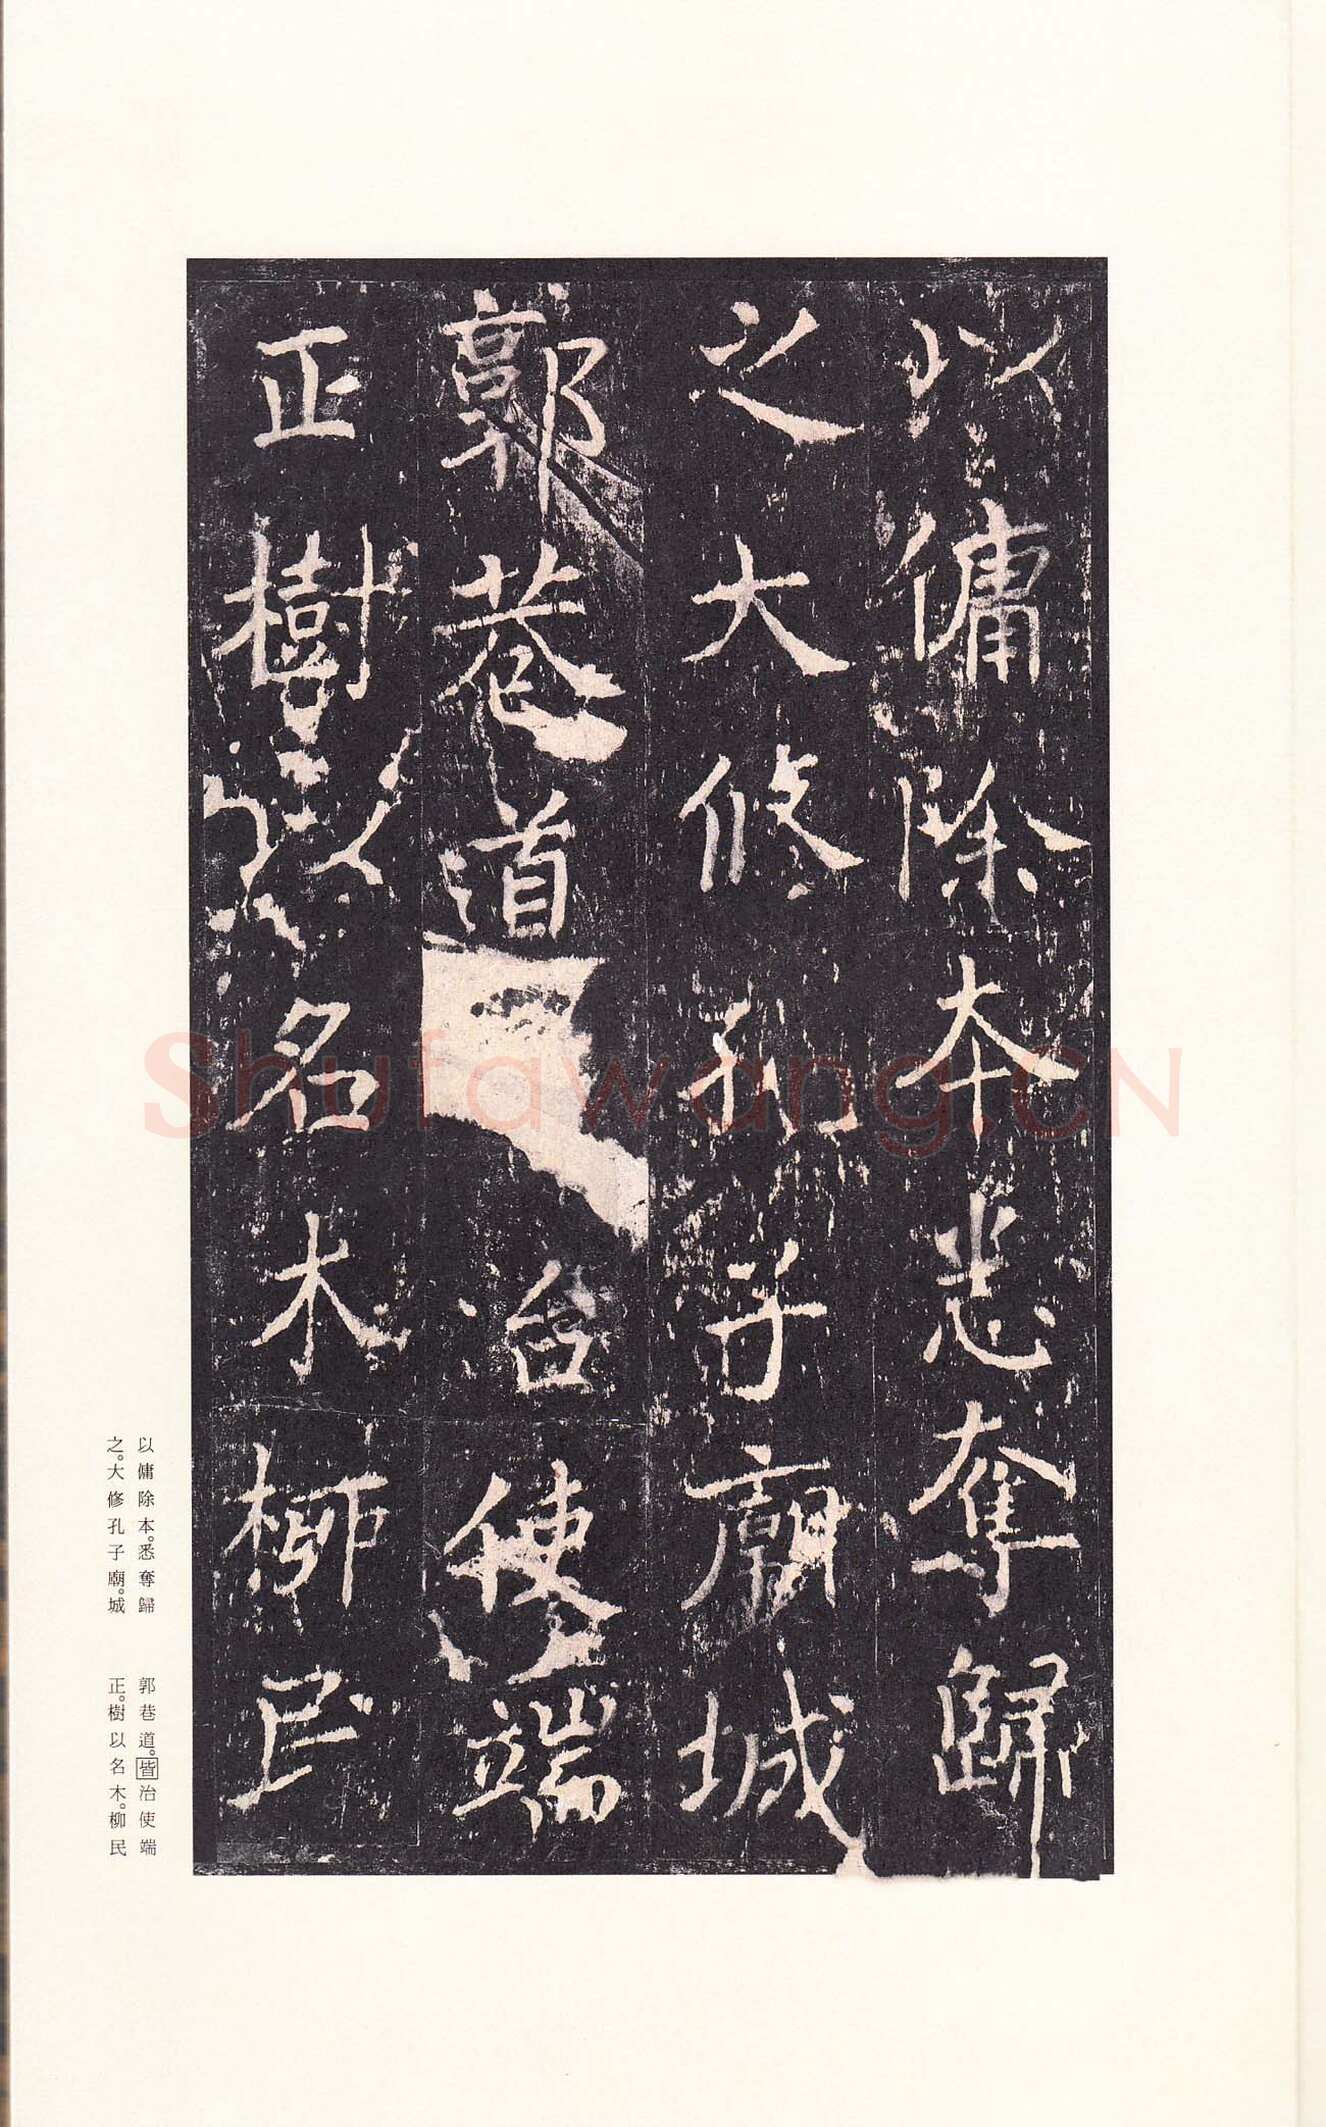 以傭除本悉奪歸
之大修孔子廟城
郭巷道治使端
正樹以名木柳民
以傭除本。悉奪歸
之。大修孔子廟。城
郭巷道。皆治使端
正。樹以名木。柳民
Shufawang.CN